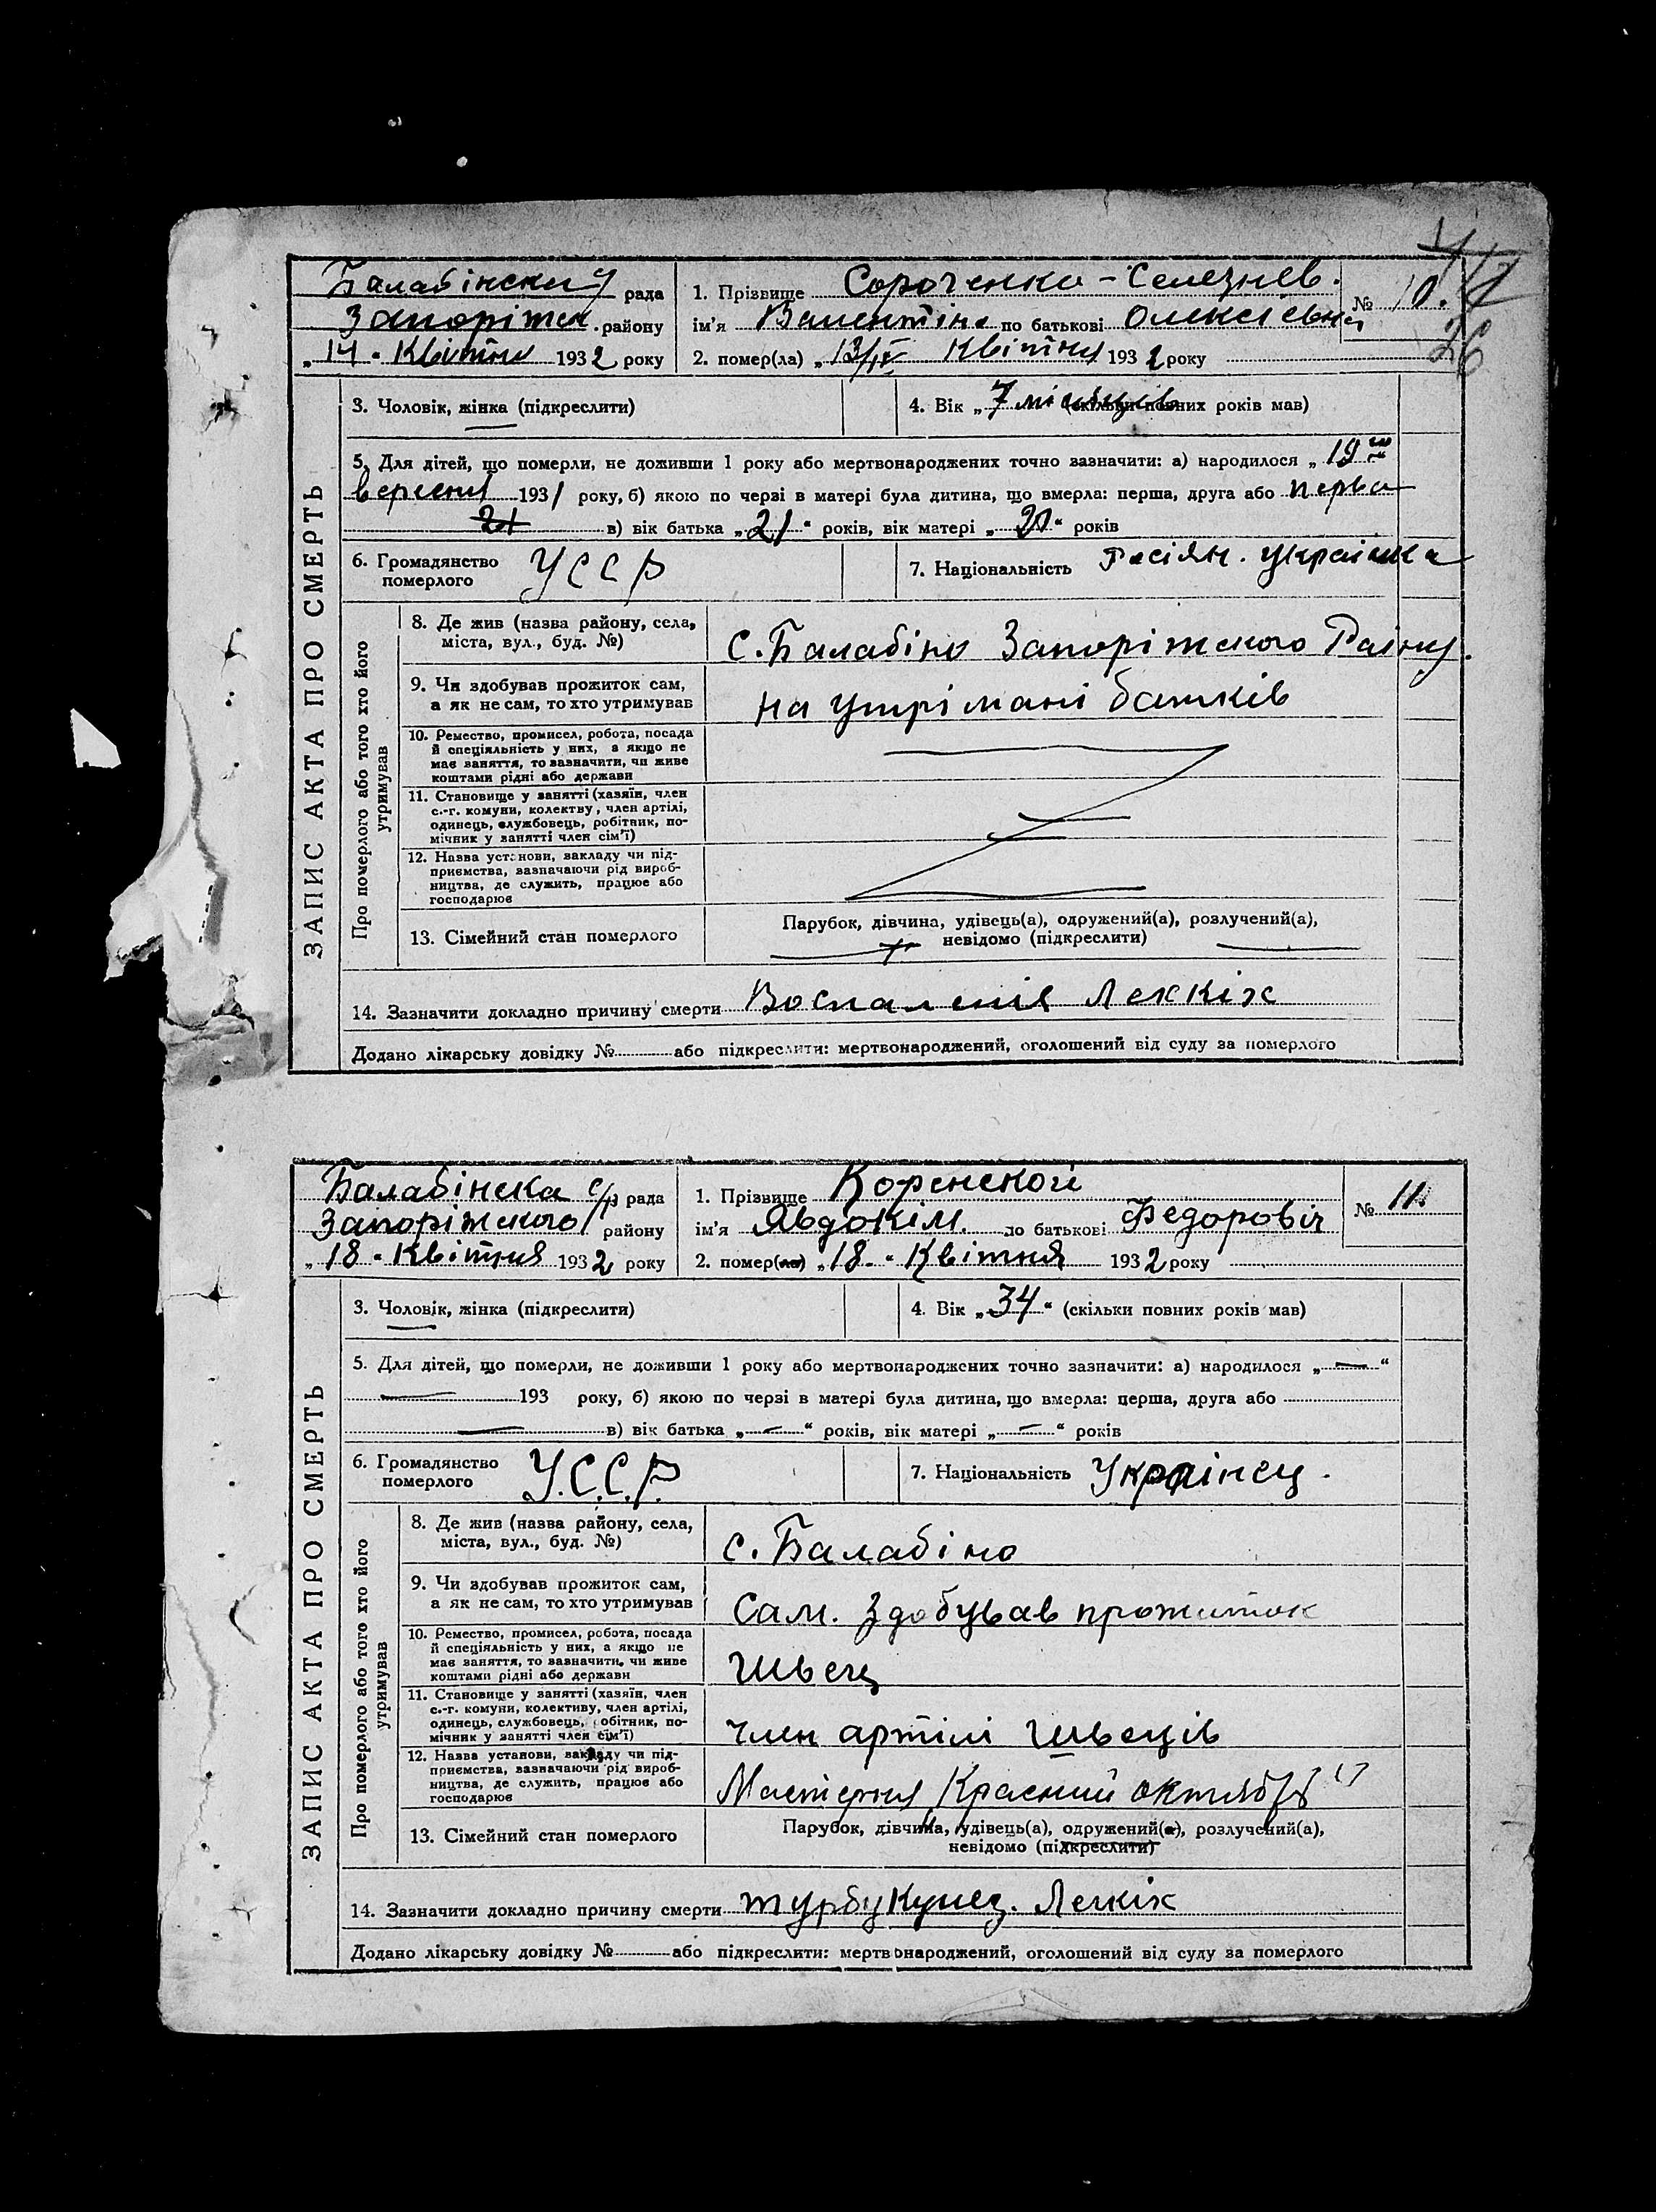 Балабінска с/ рада
Запоріжск. району
„14“ Квітня 1932 року
1. Прізвище Сороченко-Селезнев.
ім'я Валентіна по батькові Олексіевна
2. помер(ла) „13/IV Квітня 1932 року
№ 10.
26
ЗАПИС АКТА ПРО СМЕРТЬ
3. Чоловік, жінка (підкреслити)
4. Вік „7 місяців (скільки повних років мав)
5. Для дітей, що померли, не доживши 1 року або мертвонароджених точно зазначити: а) народилося „19го
вересня 1931 року, б) якою по черзі в матері була дитина, що вмерла: перша, друга або перва
21 в) вік батька „21“ років, вік матері „20“ років
6. Громадянство
померлого
УССР
7. Національність Расіян. українка
Про померлого або того хто його
утримував
8. Де жив (назва району, села,
міста, вул., буд. №)
с. Балабіно Запоріжского Раіну.
9. Чи здобував прожиток сам,
а як не сам, то хто утримував
на утрімані батків
10. Ремество, промисел, робота, посада
й спеціяльність у них, а якщо не
має заняття, то зазначити, чи живе
коштами рідні або держави
11. Становище у занятті (хазяїн, член
с.-г. комуни, колективу, член артілі,
одинець, службовець, робітник, по-
мічник у занятті член сім'ї)
12. Назва установи, закладу чи під-
приємства, зазначаючи рід вироб-
ництва, де служить, працює або
господарює
13. Сімейний стан померлого
Парубок, дівчина, удівець(а), одружений(а), розлучений(а),
невідомо (підкреслити)
14. Зазначити докладно причину смерти Воспаленія Легкіх
Додано лікарську довідку № або підкреслити: мертвонароджений, оголошений від суду за померлого
Балабінска с/р рада
Запоріжского району
„18“ Квітня 1932 року
1. Прізвище Коренской
ім'я Явдокім. по батькові Федоровіч
2. помер(ла) „18“ Квітня 1932 року
№ 11.
ЗАПИС АКТА ПРО СМЕРТЬ
3. Чоловік, жінка (підкреслити)
4. Вік „34“ (скільки повних років мав)
5. Для дітей, що померли, не доживши 1 року або мертвонароджених точно зазначити: а) народилося „—“
— 193 року, б) якою по черзі в матері була дитина, що вмерла: перша, друга або
— в) вік батька „—“ років, вік матері „—“ років
6. Громадянство
померлого
У.С.С.Р.
7. Національність Українец.
Про померлого або того хто його
утримував
8. Де жив (назва району, села,
міста, вул., буд. №)
с. Балабіно
9. Чи здобував прожиток сам,
а як не сам, то хто утримував
Сам. здобував прожиток
10. Ремество, промисел, робота, посада
й спеціяльність у них, а якщо не
має заняття, то зазначити, чи живе
коштами рідні або держави
Швец
11. Становище у занятті (хазяїн, член
с.-г. комуни, колективу, член артілі,
одинець, службовець, робітник, по-
мічник у занятті член сім'ї)
член артілі Швеців
12. Назва установи, закладу чи під-
приємства, зазначаючи рід вироб-
ництва, де служить, працює або
господарює
Мастерня „Красний октябрь"
13. Сімейний стан померлого
Парубок, дівчина, удівець(а), одружений(а), розлучений(а),
невідомо (підкреслити)
14. Зазначити докладно причину смерти турбукулез. Легкіх
Додано лікарську довідку № або підкреслити: мертвонароджений, оголошений від суду за померлого